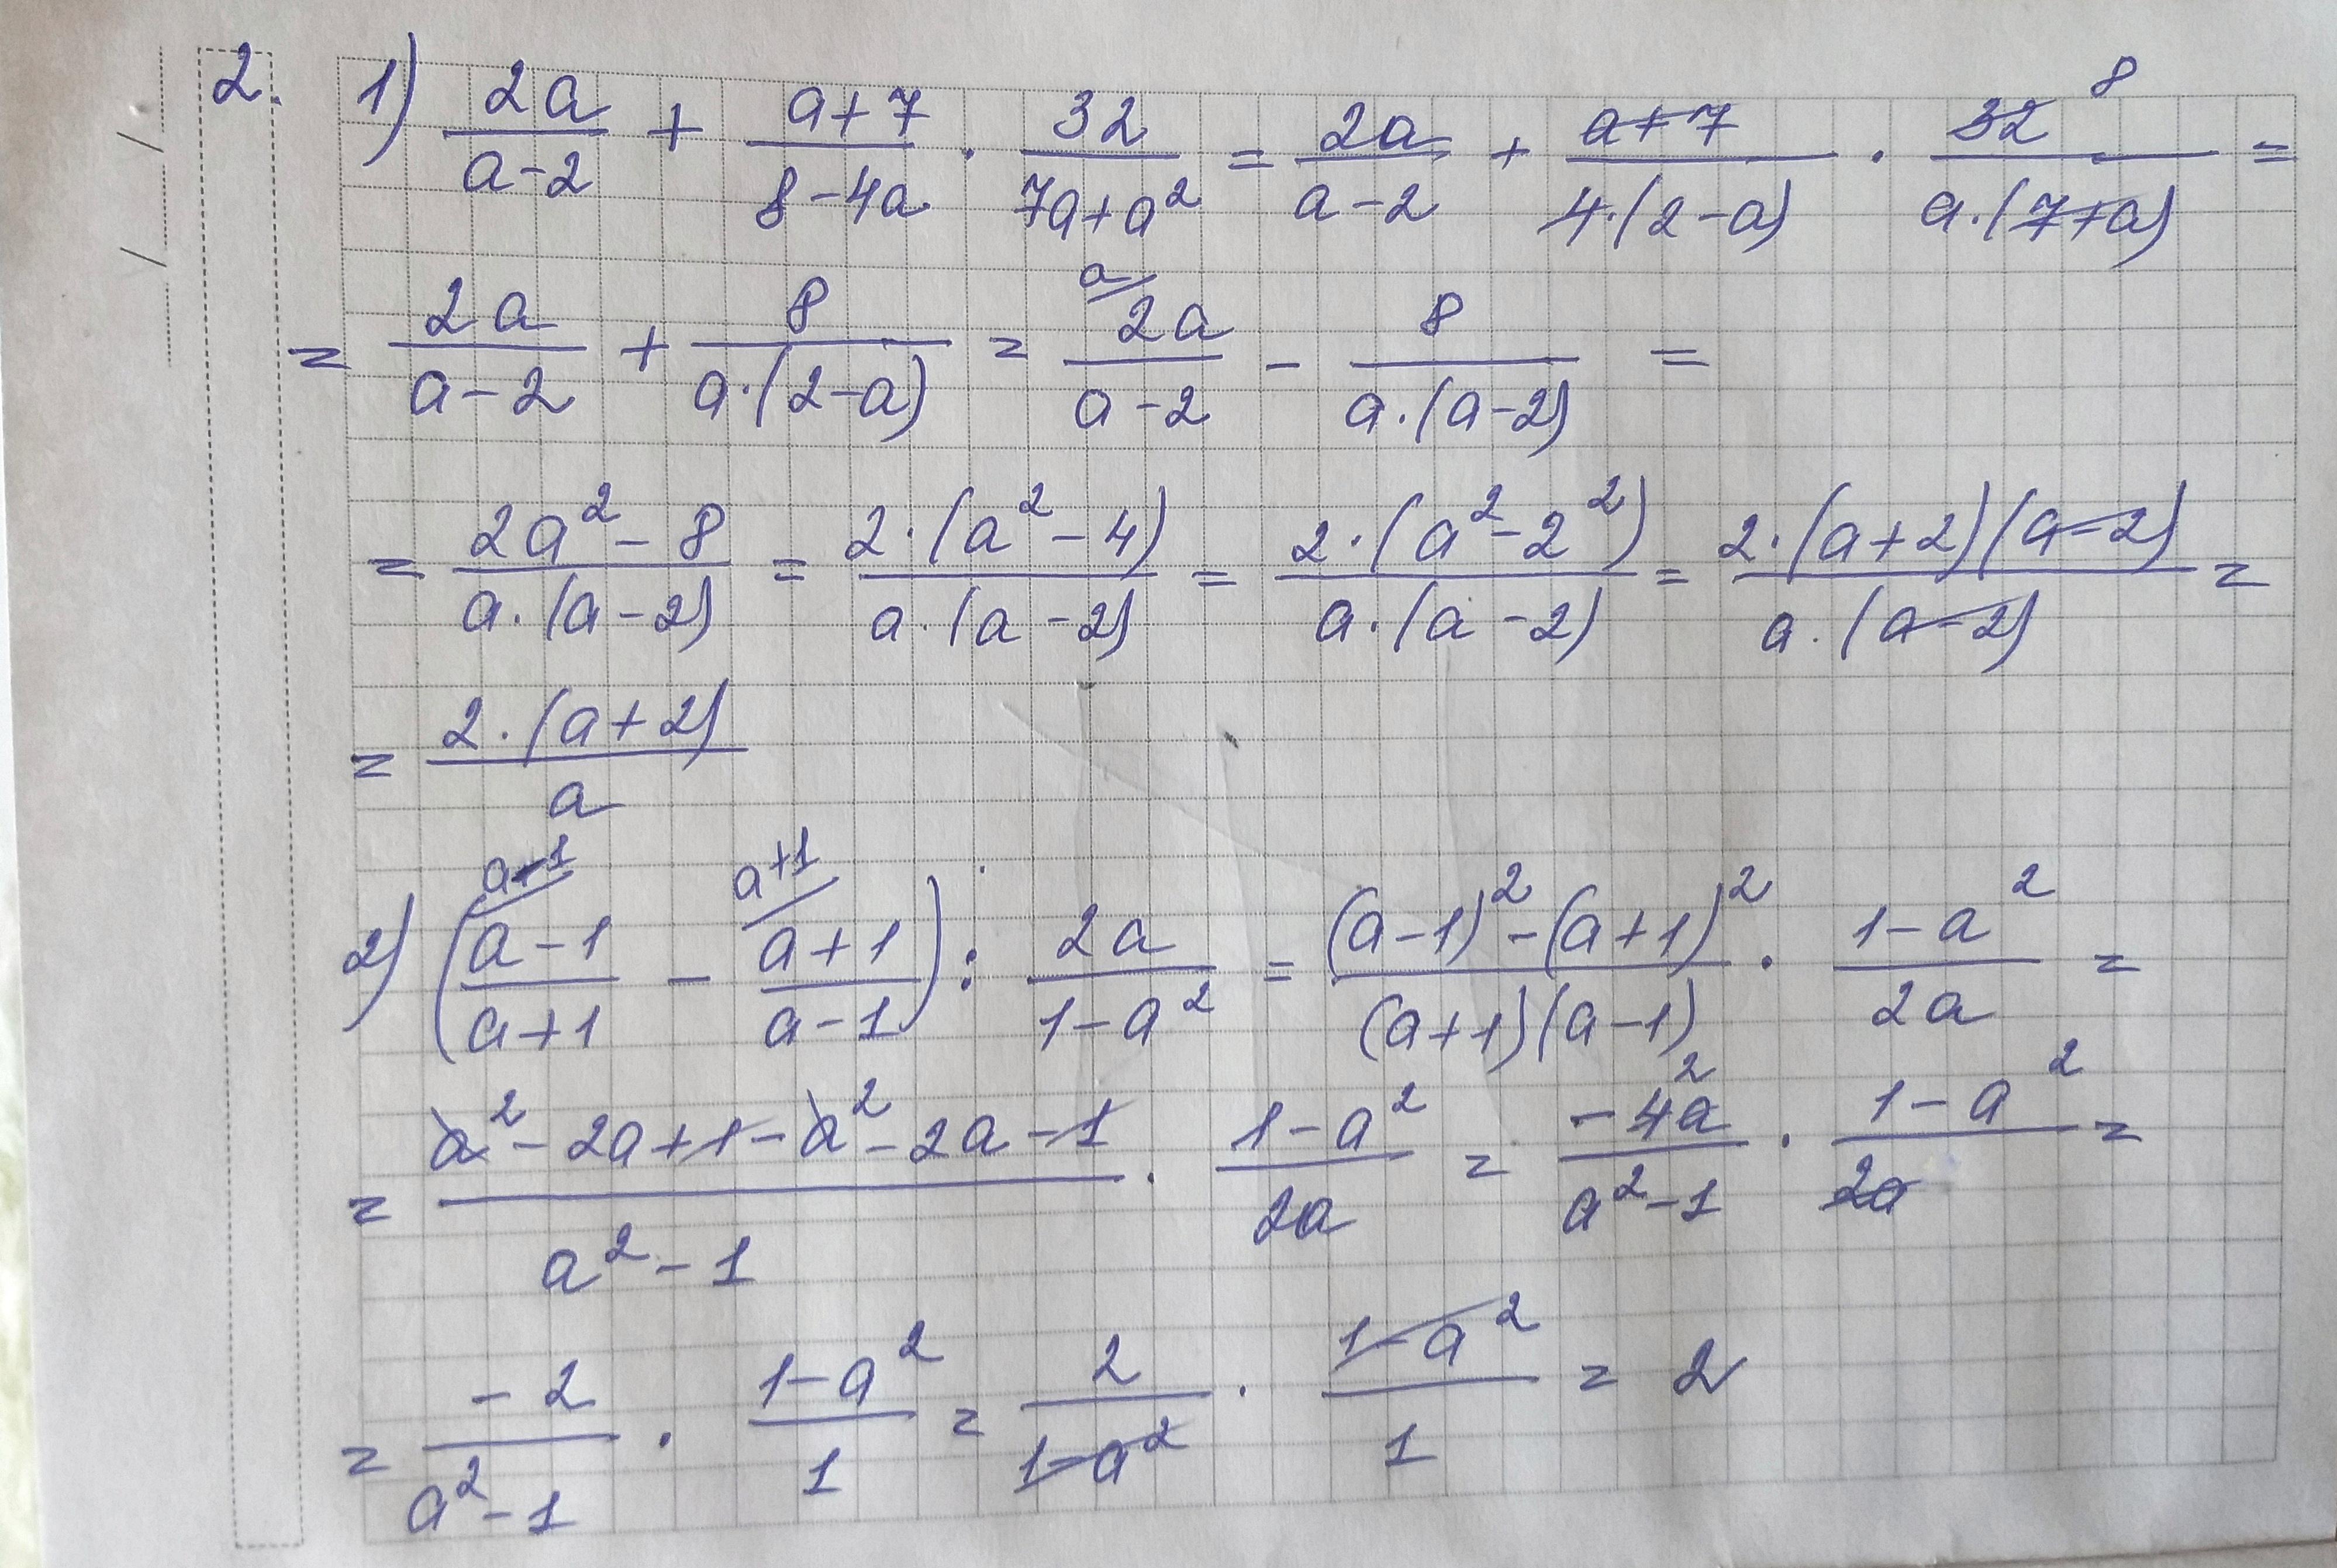 2. 1) \frac{2a}{a-2} + \frac{a+7}{8-4a} · \frac{32}{7a+a^2} = \frac{2a}{a-2} + \frac{a+7}{4·(2-a)} · \frac{32^8}{a·(7+a)} =
= \frac{2a}{a-2} + \frac{8}{a·(2-a)} = \frac{^{a/}2a}{a-2} - \frac{8}{a·(a-2)} =
= \frac{2a^2-8}{a·(a-2)} = \frac{2·(a^2-4)}{a·(a-2)} = \frac{2·(a^2-2^2)}{a·(a-2)} = \frac{2·(a+2)(a-2)}{a·(a-2)} =
= \frac{2·(a+2)}{a}
2) (\frac{^{a-1/}a-1}{a+1} - \frac{^{a+1/}a+1}{a-1}) : \frac{2a}{1-a^2} = \frac{(a-1)^2-(a+1)^2}{(a+1)(a-1)} · \frac{1-a^2}{2a} =
= \frac{a^2-2a+1-a^2-2a-1}{a^2-1} · \frac{1-a^2}{2a} = \frac{-4a^2}{a^2-1} · \frac{1-a^2}{2a} =
= \frac{-2}{a^2-1} · \frac{1-a^2}{1} = \frac{2}{1-a^2} · \frac{1-a^2}{1} = 2